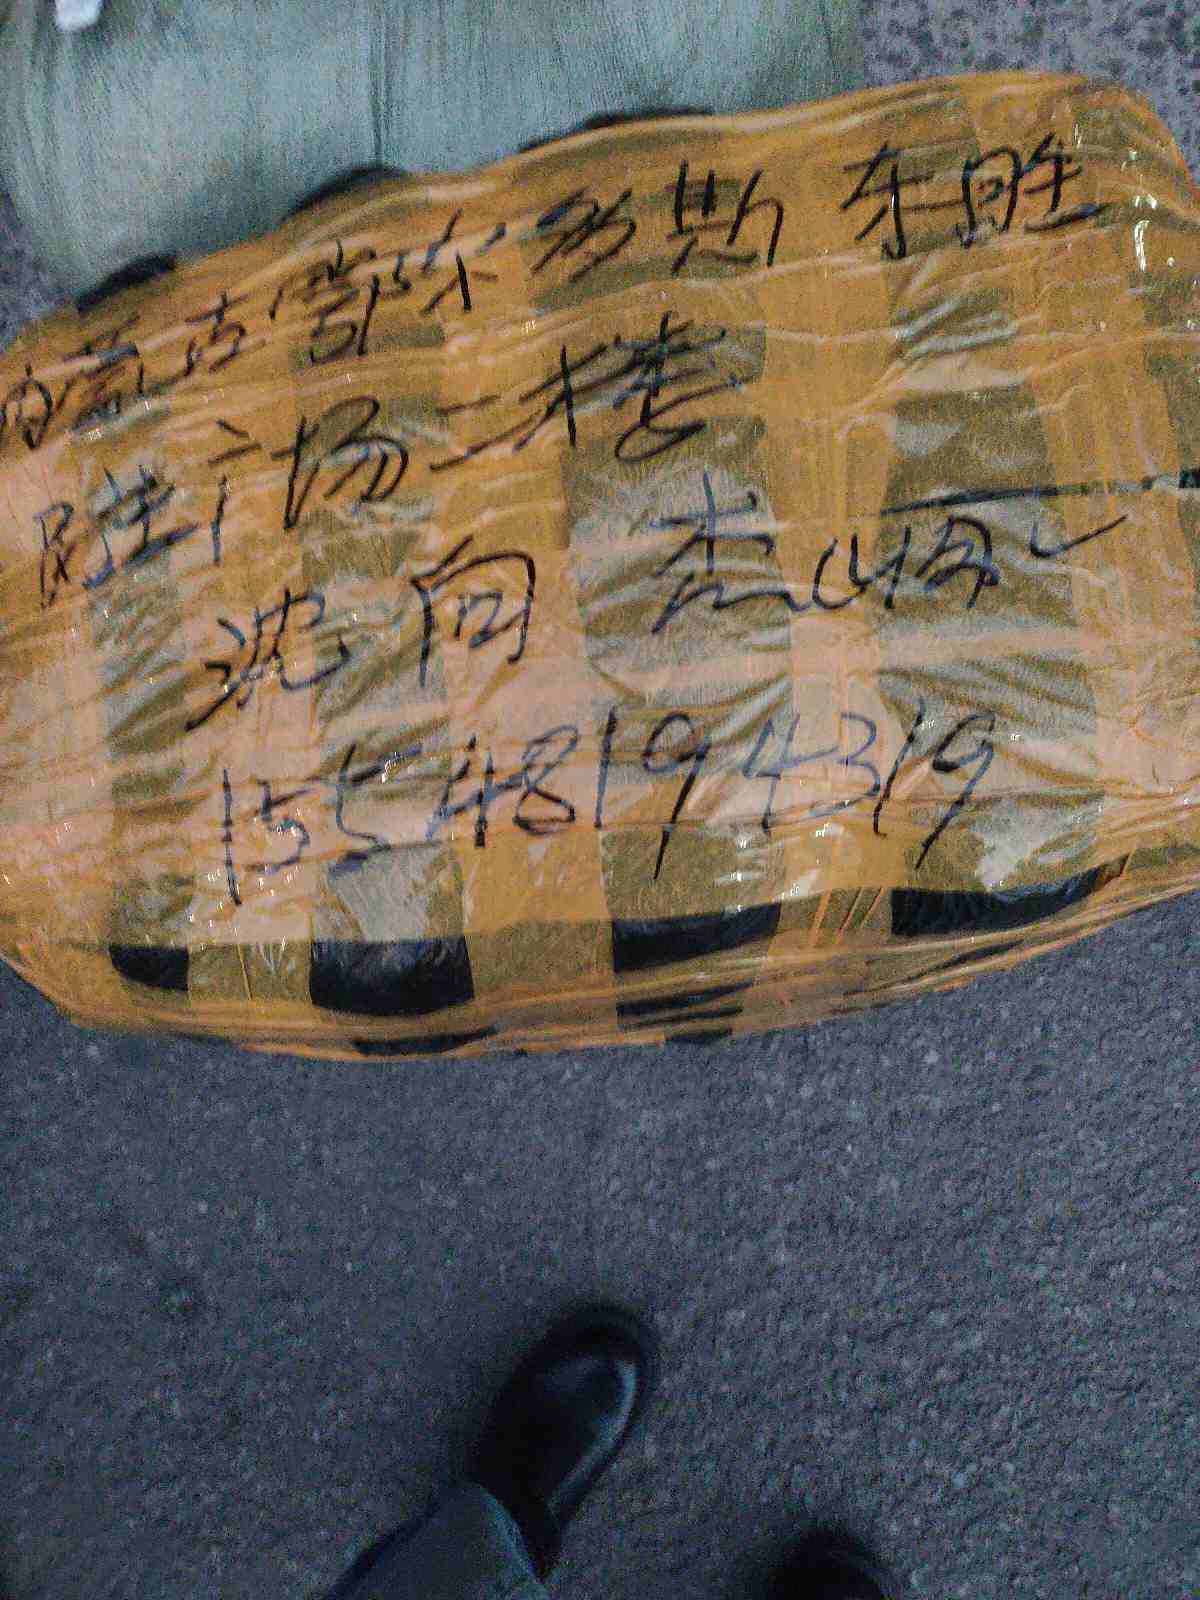 内蒙古鄂尔多斯 东胜
民胜广场二楼
沈向 杰
15548194319